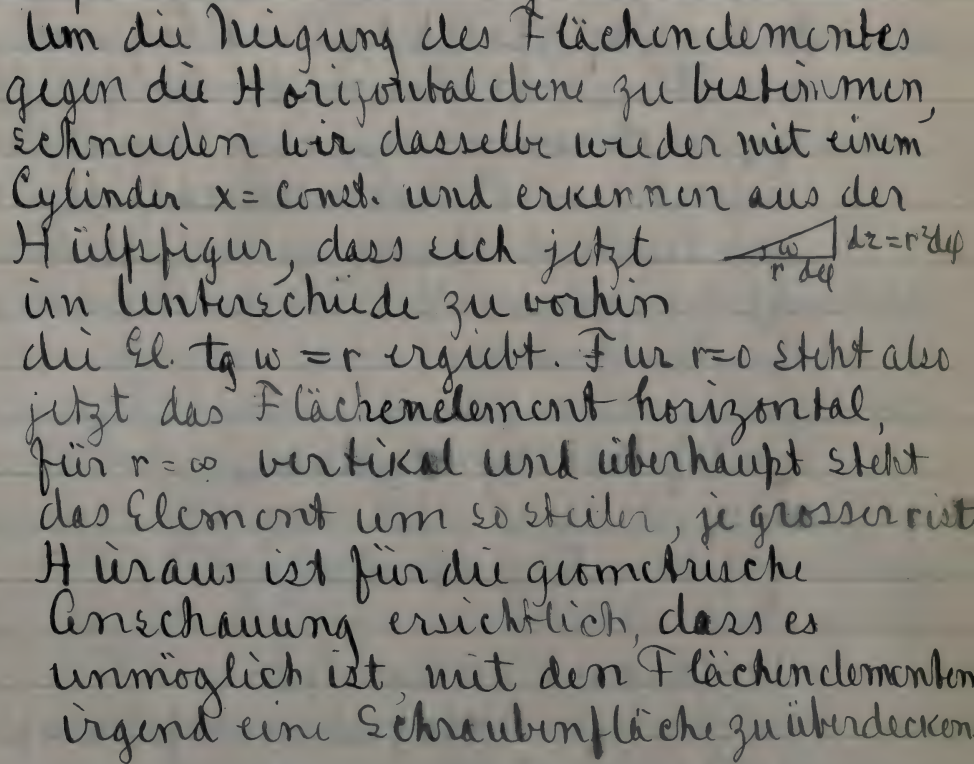 Um die Neigung des Flächenelementes
gegen die Horizontalebene zu bestimmen,
schneiden wir dasselbe wieder mit einem
Cylinder x = const. und erkennen aus der
Hülfsfigur, dass sich jetzt
ω r dφ dz = r²dφ
im Unterschiede zu vorhin
die Gl. tg ω = r ergiebt. Fur r=0 steht also
jetzt das Flächenelement horizontal,
für r = ∞ vertikal und überhaupt steht
das Element um so steiler, je grosser r ist
Hieraus ist für die geometrische
Anschauung ersichtlich, dass es
unmöglich ist, mit den Flächenelementen
irgend eine Schraubenfläche zu überdecken